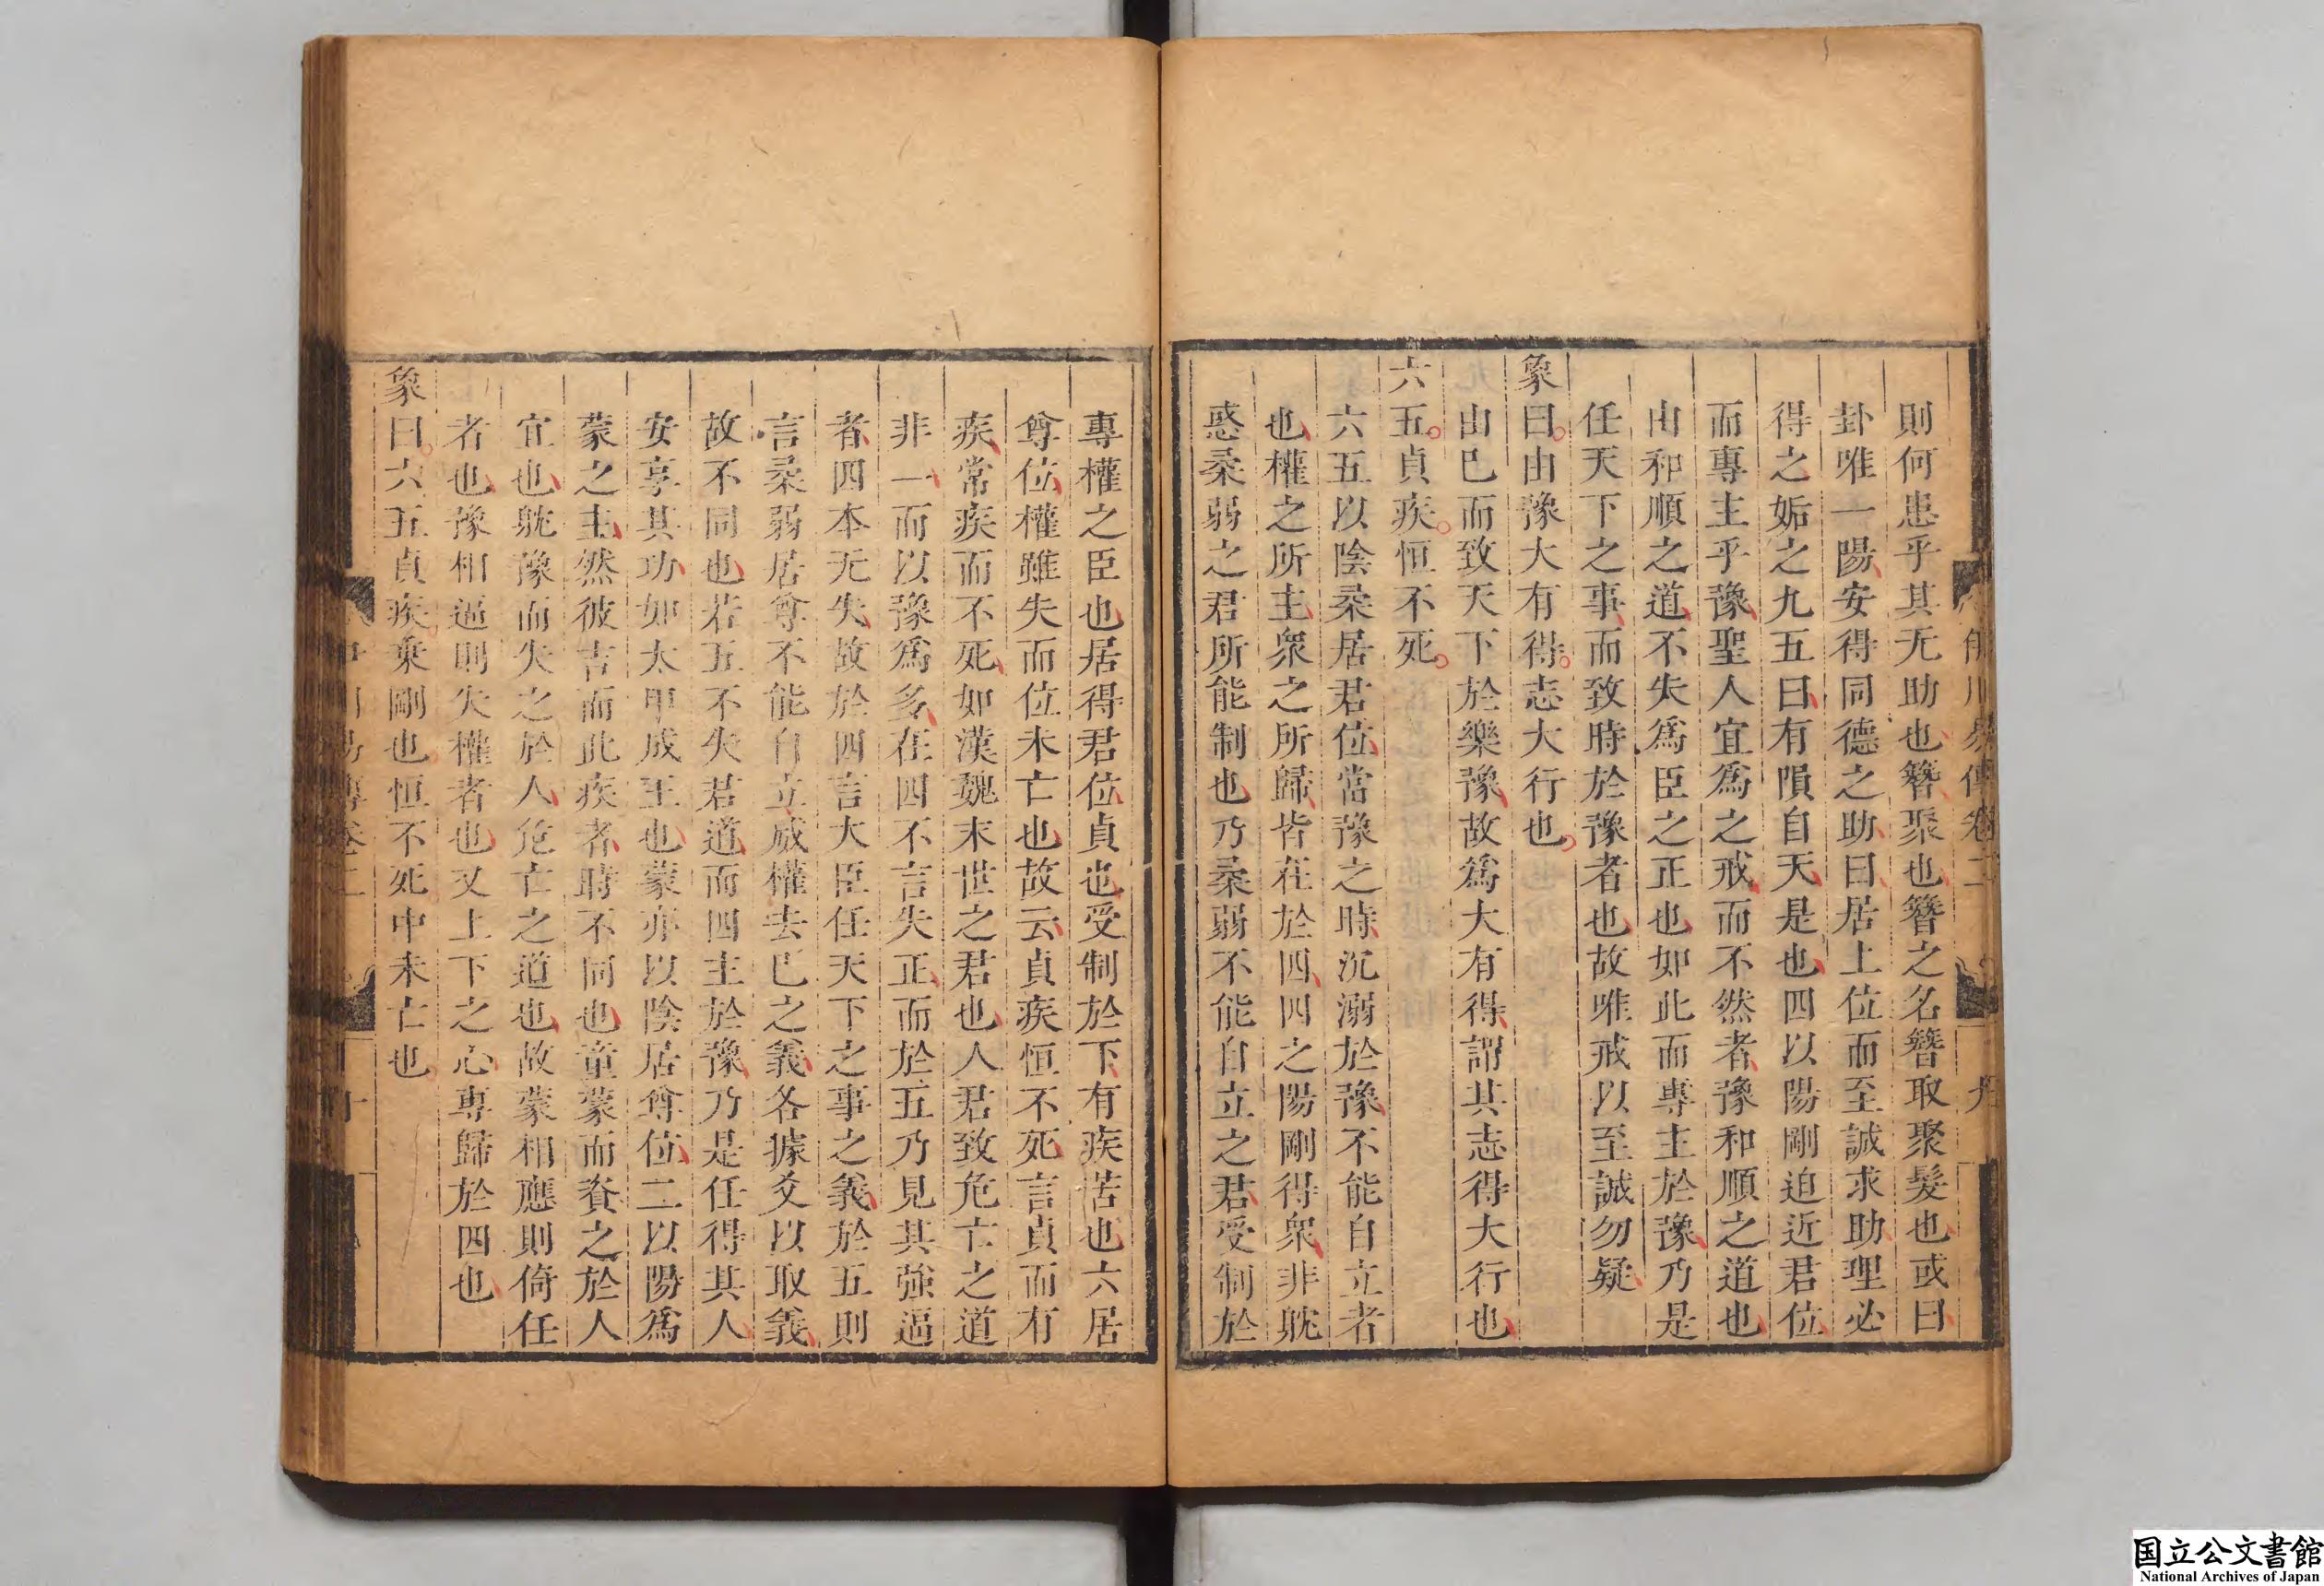 則何患乎其无助也簪聚也簪之名簪取聚髮也或曰
卦唯一陽安得同德之助曰居上位而至誠求助理必
得之姤之九五曰有隕自天是也四以陽剛迫近君位
而專主乎豫聖人宜爲之戒而不然者豫和順之道也
由和順之道不失爲臣之正也如此而專主於豫乃是
任天下之事而致時於豫者也故唯戒以至誠勿疑
象曰由豫大有得志大行也
由已而致天下於樂豫故爲大有得謂其志得大行也
六五貞疾恒不死
六五以陰柔居君位當豫之時沉溺於豫不能自立者
也權之所主衆之所歸皆在於四四之陽剛得衆非耽
惑柔弱之君所能制也乃柔弱不能自立之君受制於
專權之臣也居得君位貞也受制於下有疾苦也六居
尊位權雖失而位未亡也故云貞疾恒不死言貞而有
疾常疾而不死如漢魏末世之君也人君致危亡之道
非一而以豫爲多在四不言失正而於五乃見其強逼
者四本无失故於四言大臣任天下之事之義於五則
言柔弱居尊不能自立威權去已之義各據爻以取義
故不同也若五不失君道而四主於豫乃是任得其人
安享其功如太甲成王也蒙亦以陰居尊位二以陽爲
蒙之主然彼吉而此疾者時不同也童蒙而資之於人
宜也耽豫而失之於人危亡之道也故蒙相應則倚任
者也豫相逼則失權者也又上下之心專歸於四也
象曰六五貞疾乘剛也恒不死中未亡也
伊川易傳卷二
国立公文書館
National Archives of Japan